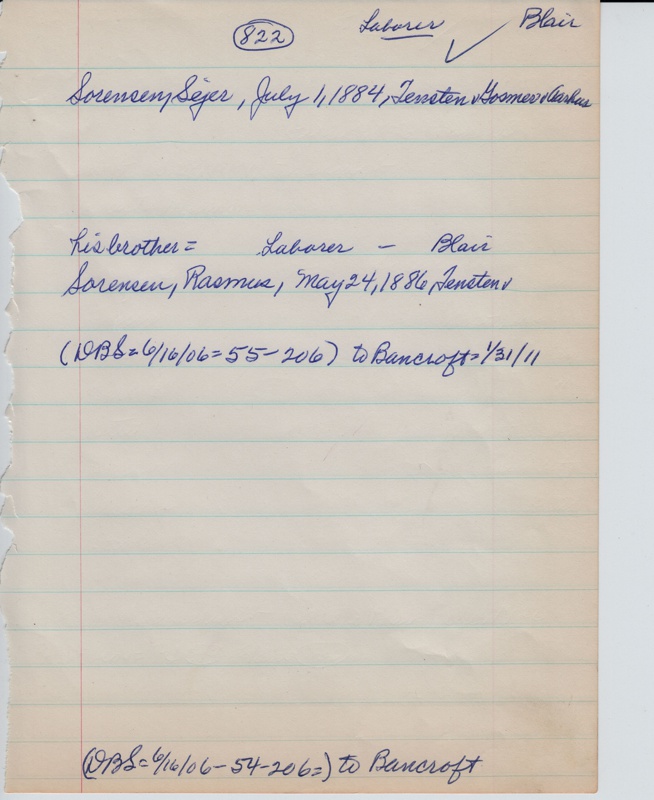 822 Laborer ✓ Blair
Sorensen, Sejer, July 1, 1884, Tensten v Gosmer v Aarhus
his brother = Laborer - Blair
Sorensen, Rasmus, May 24, 1886, Tensten v
(DBS = 6/16/06 = 55-206) to Bancroft = 1/31/11
(DBS = 6/16/06 - 54-206 =) to Bancroft